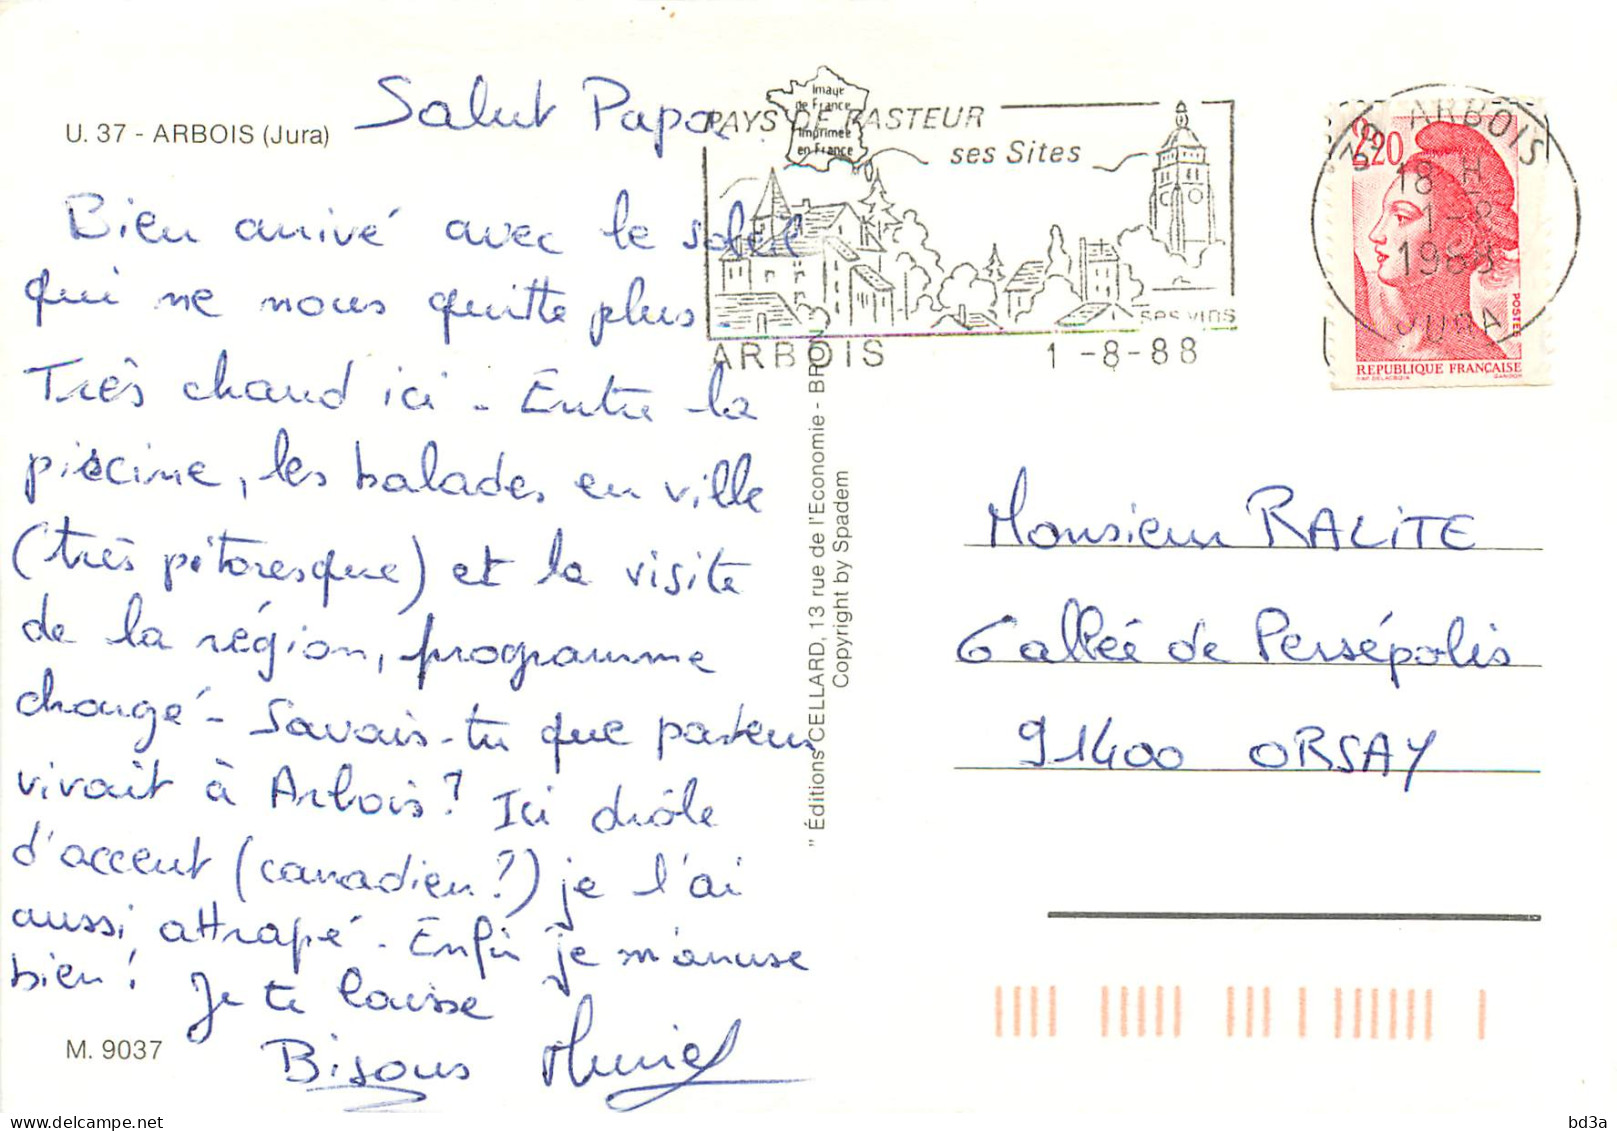 U. 37 - ARBOIS (Jura)
Salut Papa,
Bien arrivé avec le soleil
qui ne nous quitte plus.
Très chaud ici - Entre la
piscine, les balades en ville
(très pitoresque) et la visite
de la région, programme
chargé - Savais-tu que pasteur
vivait à Arbois? Ici drôle
d'accent (canadien?) je l'ai
aussi attrapé - Enfin je m'amuse
bien! Je te laisse
Bisous Muriel
M. 9037
Image
de France
Imprimée
en France
PAYS DE PASTEUR
ses Sites
ses vins
ARBOIS 1 -8-88
39 ARBOIS
18 H
1-8
1988
JURA
2,20
POSTES
REPUBLIQUE FRANÇAISE
D'AP. DELACROIX GANDON
" Éditions CELLARD, 13 rue de l'Economie - BRON
Copyright by Spadem
Monsieur RALITE
6 allée de Persépolis
91400 ORSAY
bd3a